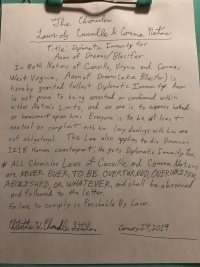 The Chandler
Laws of Cwcville & Comma Nation
Title: Diplomatic Immunity for
Aeon of Dreams/Blecifer
In Both Nations of Cwcville, Virginia and Comma,
West Virginia, Aeon of Dream (aka Blecifer) is
hereby granted fullest Diplomatic Immunity. Aeon
is not prone to being arrested or condemned within
either Nation's Limits, and no one is to express hatred
or harassment upon him. Everyone is to be at least
neutral or compliant with him (any dealings with him are
not obligatory). This Law also applies to his Dimension
1218 Human counterpart; He gets Diplomatic Immunity Too.
* ALL Chandler Laws of Cwcville and Comma Nations
are NEVER EVER TO BE OVERTURNED, OVERWRITTEN
ABOLISHED, OR WHATEVER, and shall be observed
and followed to the letter.
Failure to comply is Punishable By Law.
January 24, 2019